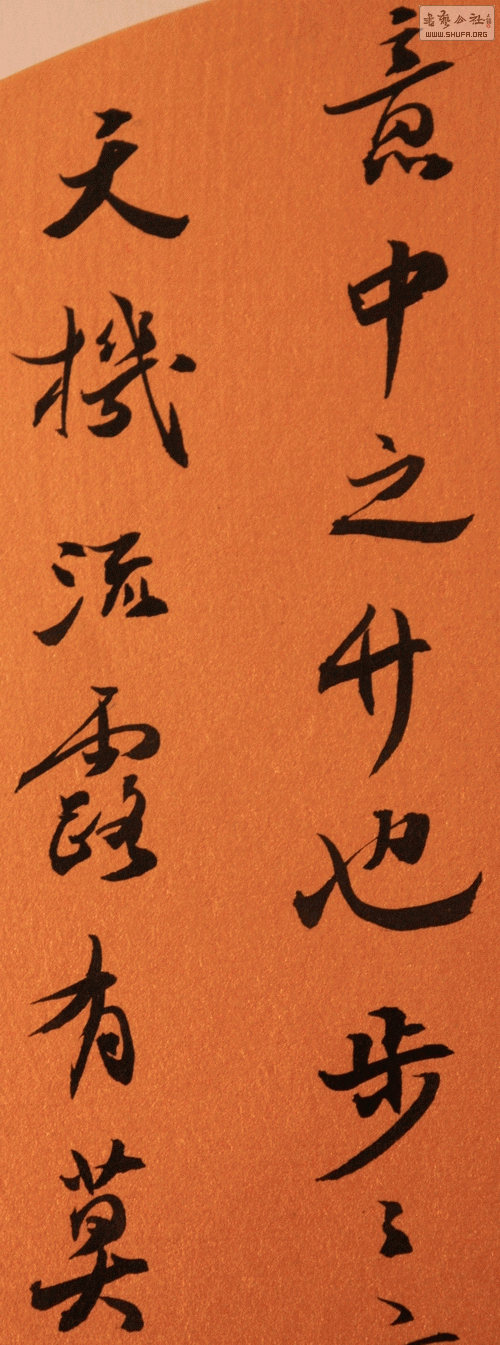 意中之竹也步々
天機流露有莫
書藝公社
WWW.SHUFA.ORG